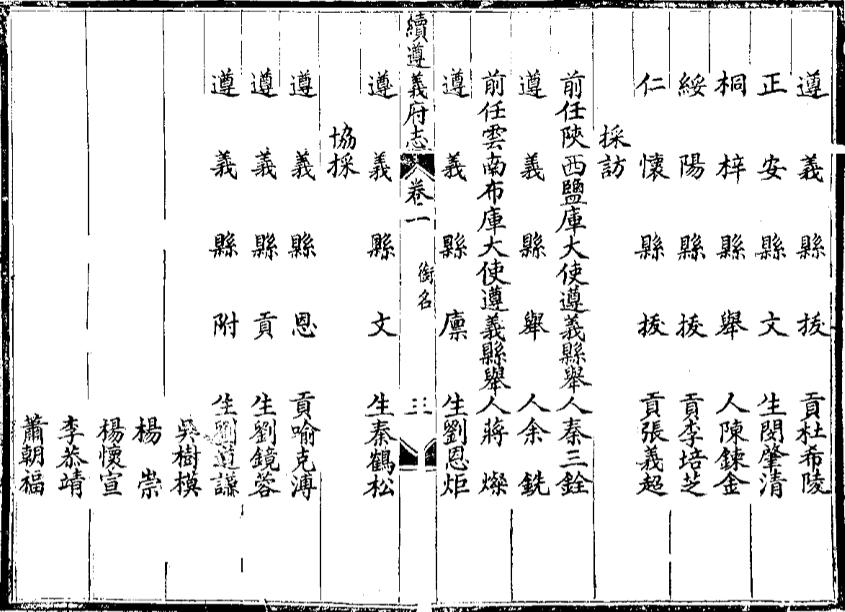 遵義縣拔貢杜希陵
正安縣文生閔肇清
桐梓縣舉人陳鍊金
綏陽縣拔貢李培芝
仁懷縣拔貢張義超
採訪
前任陜西鹽庫大使遵義縣舉人秦三銓
遵義縣舉人余銑
前任雲南布庫大使遵義縣舉人蔣燦
遵義縣廪生劉恩炬
續遵義府志 卷一 銜名 三
遵義縣文生秦鶴松
協採
遵義縣恩貢喻克溥
遵義縣貢生劉鏡蓉
遵義縣附生劉道謙
吳樹模
楊崇
楊懷宣
李恭靖
蕭朝福